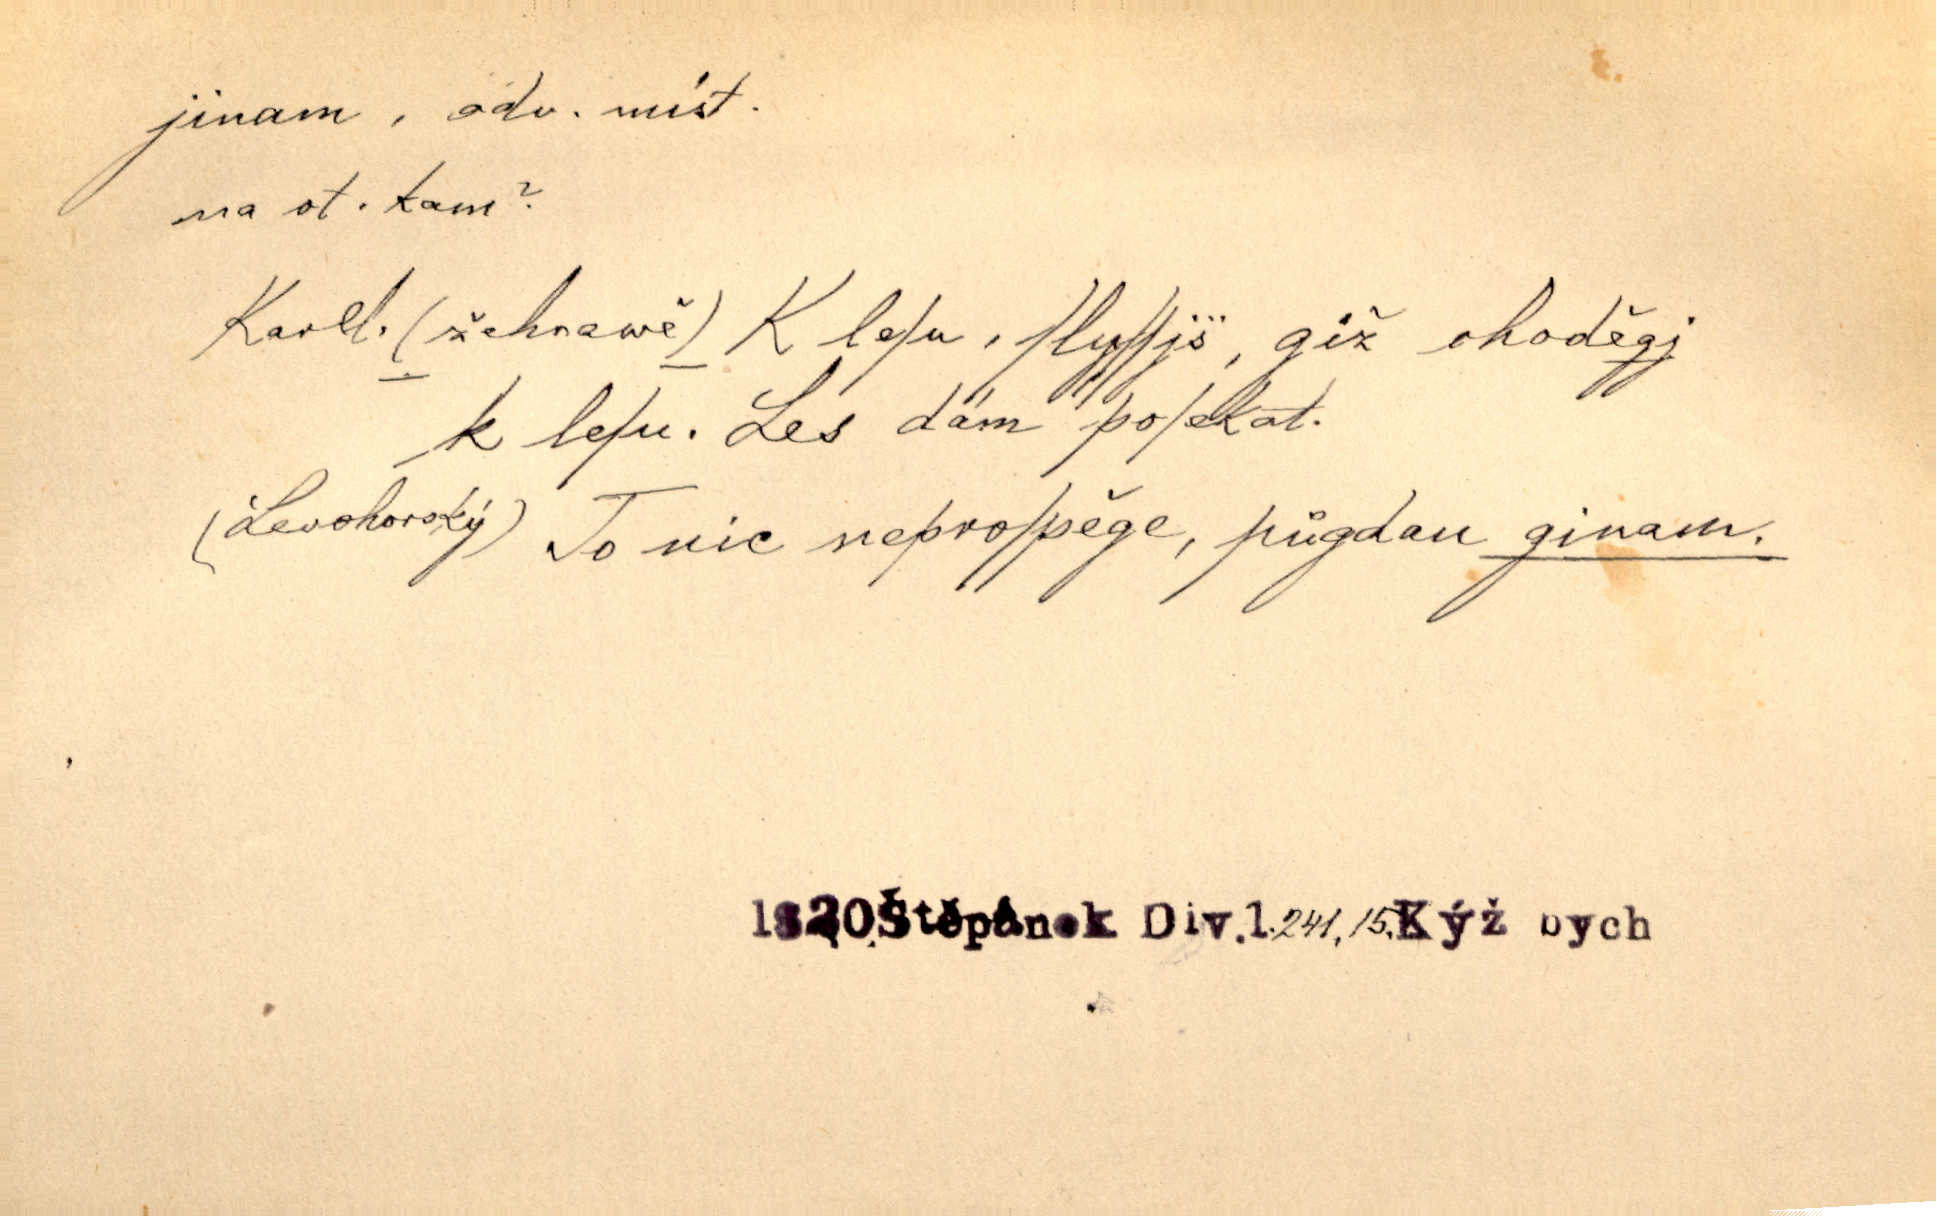 jinam, adv. míst.
na ot. kam?
Karll. (žehrawě) K leſu, ſlyſſjš, giž choděgj
k leſu. Les dám poſekat.
(Levohorský) To nic neproſpěge, půgdau ginam.
1820 Štěpánek Div.1.241,15.Kýž bych